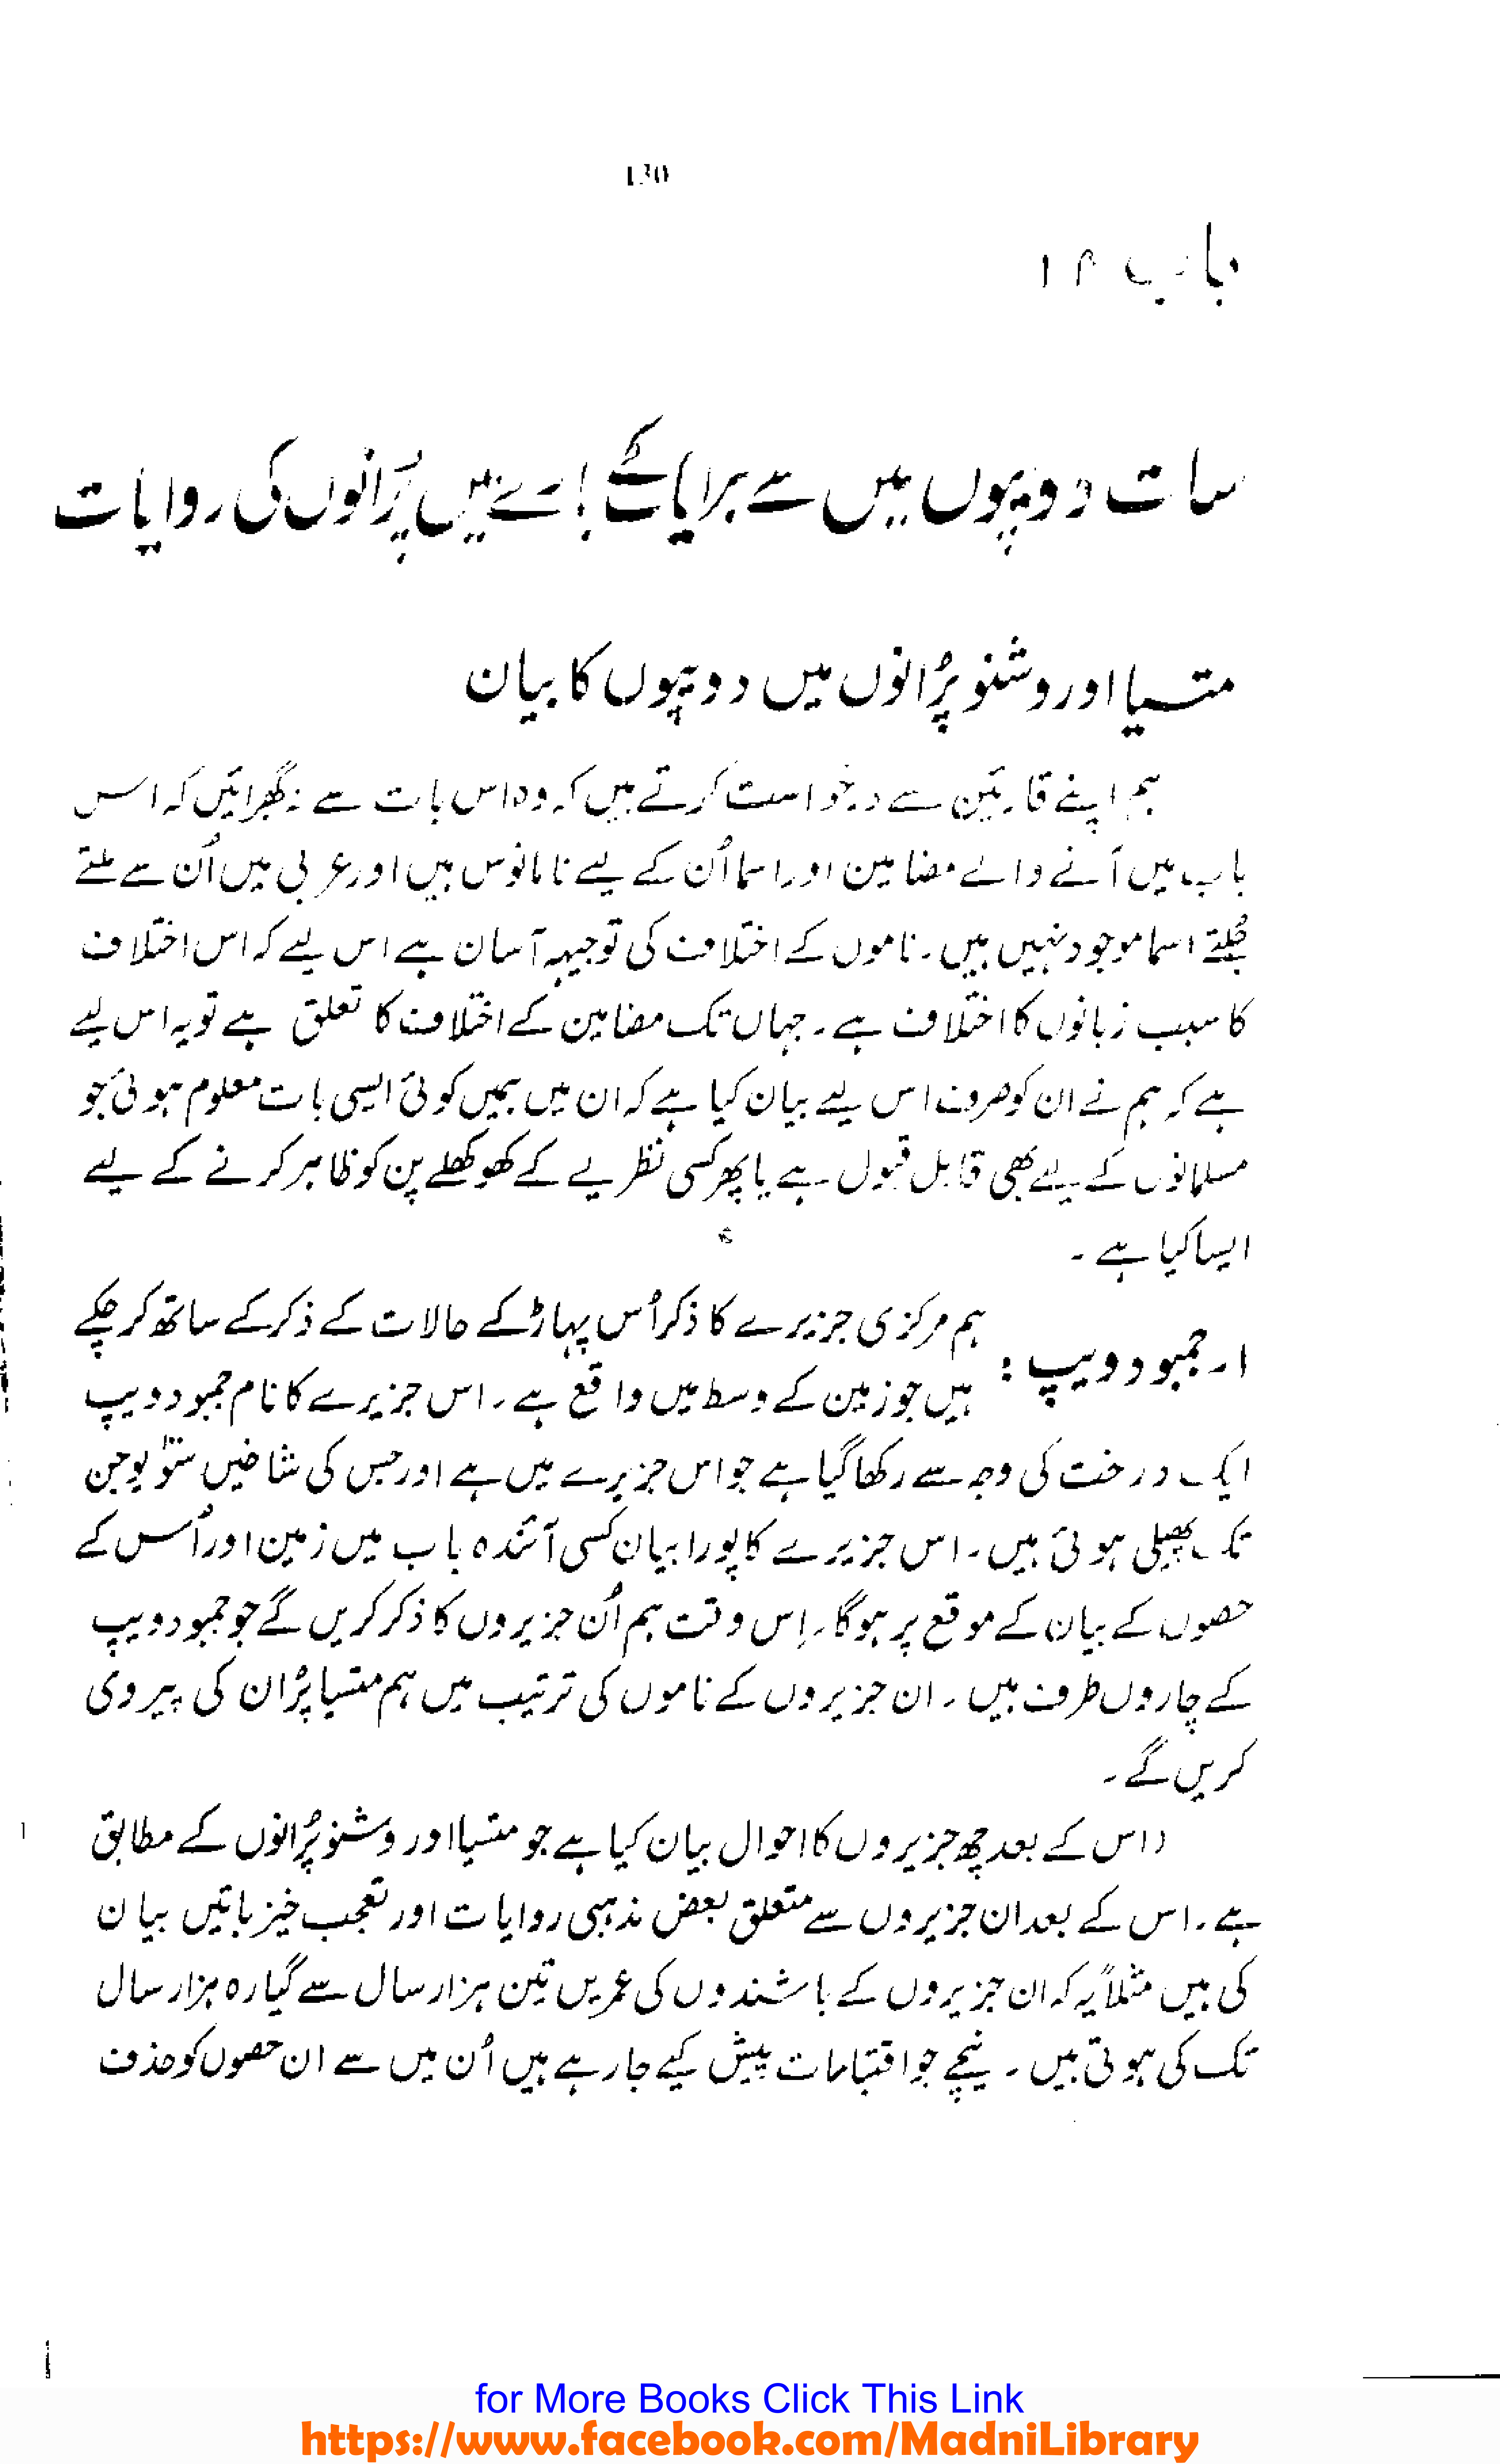 130
باب ۲۴
سات دویپوں میں سے ہر ایک کے بارے میں پُرانوں کی روایات
متسیا اور وشنو پُرانوں میں دویپوں کا بیان
ہم اپنے قارئین سے درخواست کرتے ہیں کہ وہ اس بات سے نہ گھبرائیں کہ اس
باب میں آنے والے مضامین اور اسما اُن کے لیے نامانوس ہیں اور عربی میں اُن سے ملتے
جُلتے اسما موجود نہیں ہیں۔ ناموں کے اختلاف کی توجیہہ آسان ہے اس لیے کہ اس اختلاف
کا سبب زبانوں کا اختلاف ہے۔ جہاں تک مضامین کے اختلاف کا تعلق ہے تو یہ اس لیے
ہے کہ ہم نے ان کو صرف اس لیے بیان کیا ہے کہ ان میں ہمیں کوئی ایسی بات معلوم ہوئی جو
مسلمانوں کے لیے بھی قابل قبول ہے یا پھر کسی نظریے کے کھوکھلے پن کو ظاہر کرنے کے لیے
ایسا کیا ہے۔
۱۔ جمبو دویپ : ہم مرکزی جزیرے کا ذکر اُس پہاڑ کے حالات کے ذکر کے ساتھ کر چکے
ہیں جو زمین کے وسط میں واقع ہے۔ اس جزیرے کا نام جمبو دویپ
ایک درخت کی وجہ سے رکھا گیا ہے جو اس جزیرے میں ہے اور جس کی شاخیں سَو یوجن
تک پھیلی ہوئی ہیں۔ اس جزیرے کا پورا بیان کسی آئندہ باب میں زمین اور اُس کے
حصوں کے بیان کے موقع پر ہوگا۔ اِس وقت ہم اُن جزیروں کا ذکر کریں گے جو جمبو دویپ
کے چاروں طرف ہیں۔ ان جزیروں کے ناموں کی ترتیب میں ہم متسیا پُران کی پیروی
کریں گے۔
(اس کے بعد چھ جزیروں کا احوال بیان کیا ہے جو متسیا اور وشنو پُرانوں کے مطابق
ہے۔ اس کے بعد ان جزیروں سے متعلق بعض مذہبی روایات اور تعجب خیز باتیں بیان
کی ہیں مثلاً یہ کہ ان جزیروں کے باشندوں کی عمریں تین ہزار سال سے گیارہ ہزار سال
تک کی ہوتی ہیں۔ نیچے جو اقتباسات پیش کیے جا رہے ہیں اُن میں سے ان حصوں کو حذف
for More Books Click This Link
https://www.facebook.com/MadniLibrary